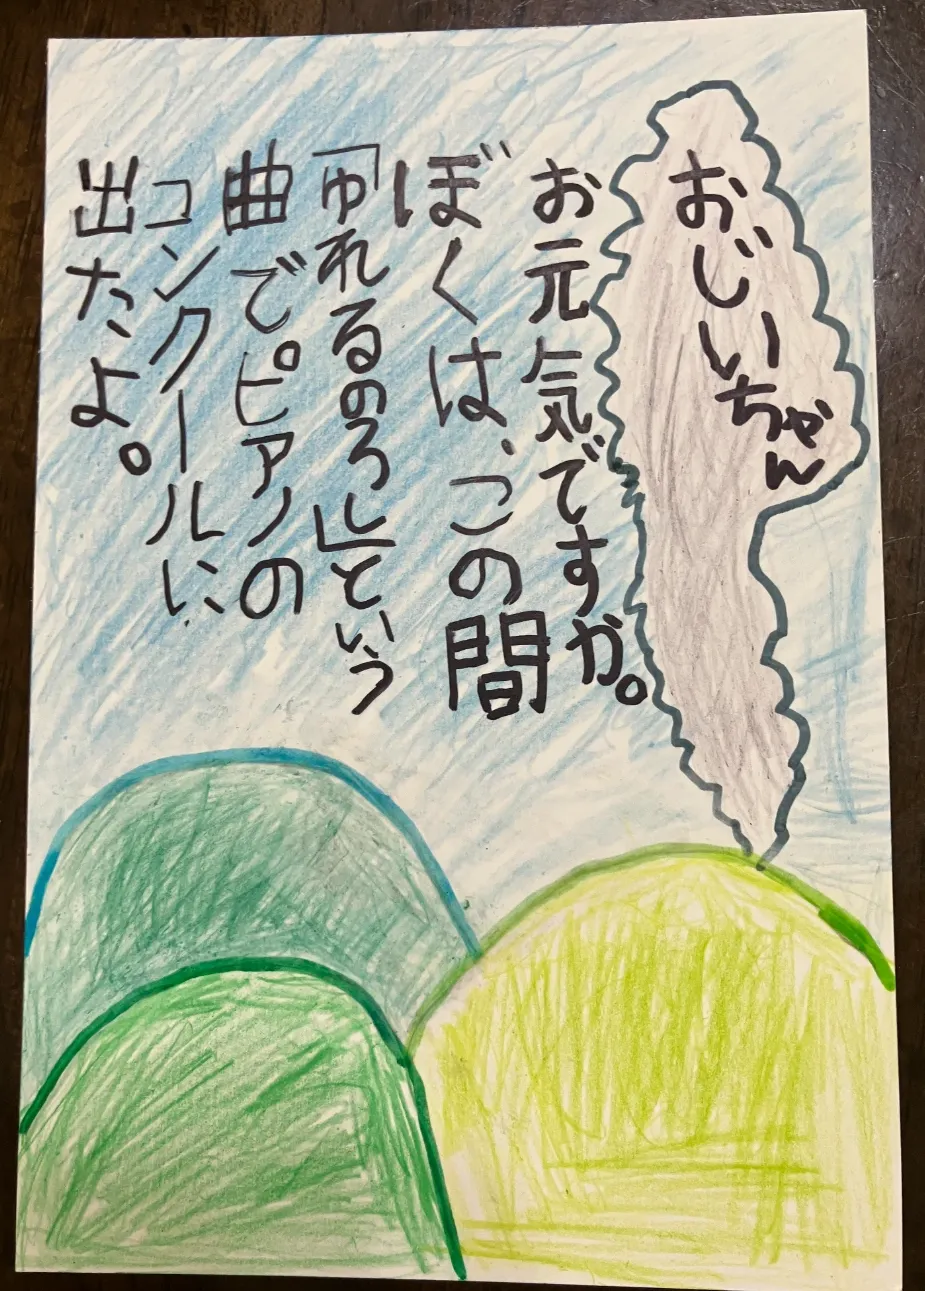 おじいちゃん
お元気ですか。
ぼくは、この間
「ゆれるのろし」という
曲でピアノの
コンクールに
出たよ。